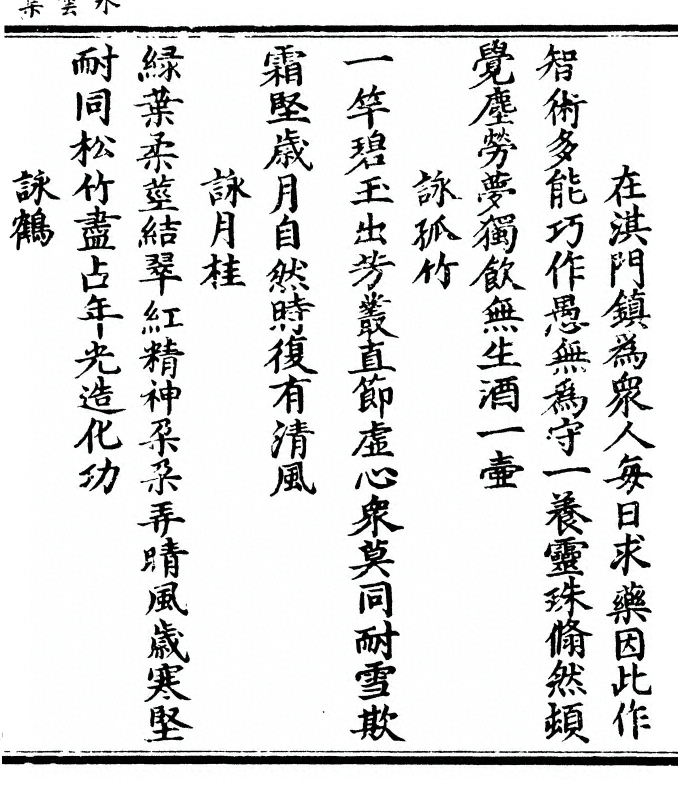 在淇門鎮為衆人每日求藥因此作
智術多能巧作愚無為守一養靈珠翛然頓
覺塵勞夢獨飲無生酒一壷
詠孤竹
一竿碧玉出芳叢直節虛心衆莫同耐雪欺
霜堅歲月自然時復有清風
詠月桂
緑葉柔莖結翠紅精神朶朶弄晴風歲寒堅
耐同松竹盡占年光造化功
詠鶴